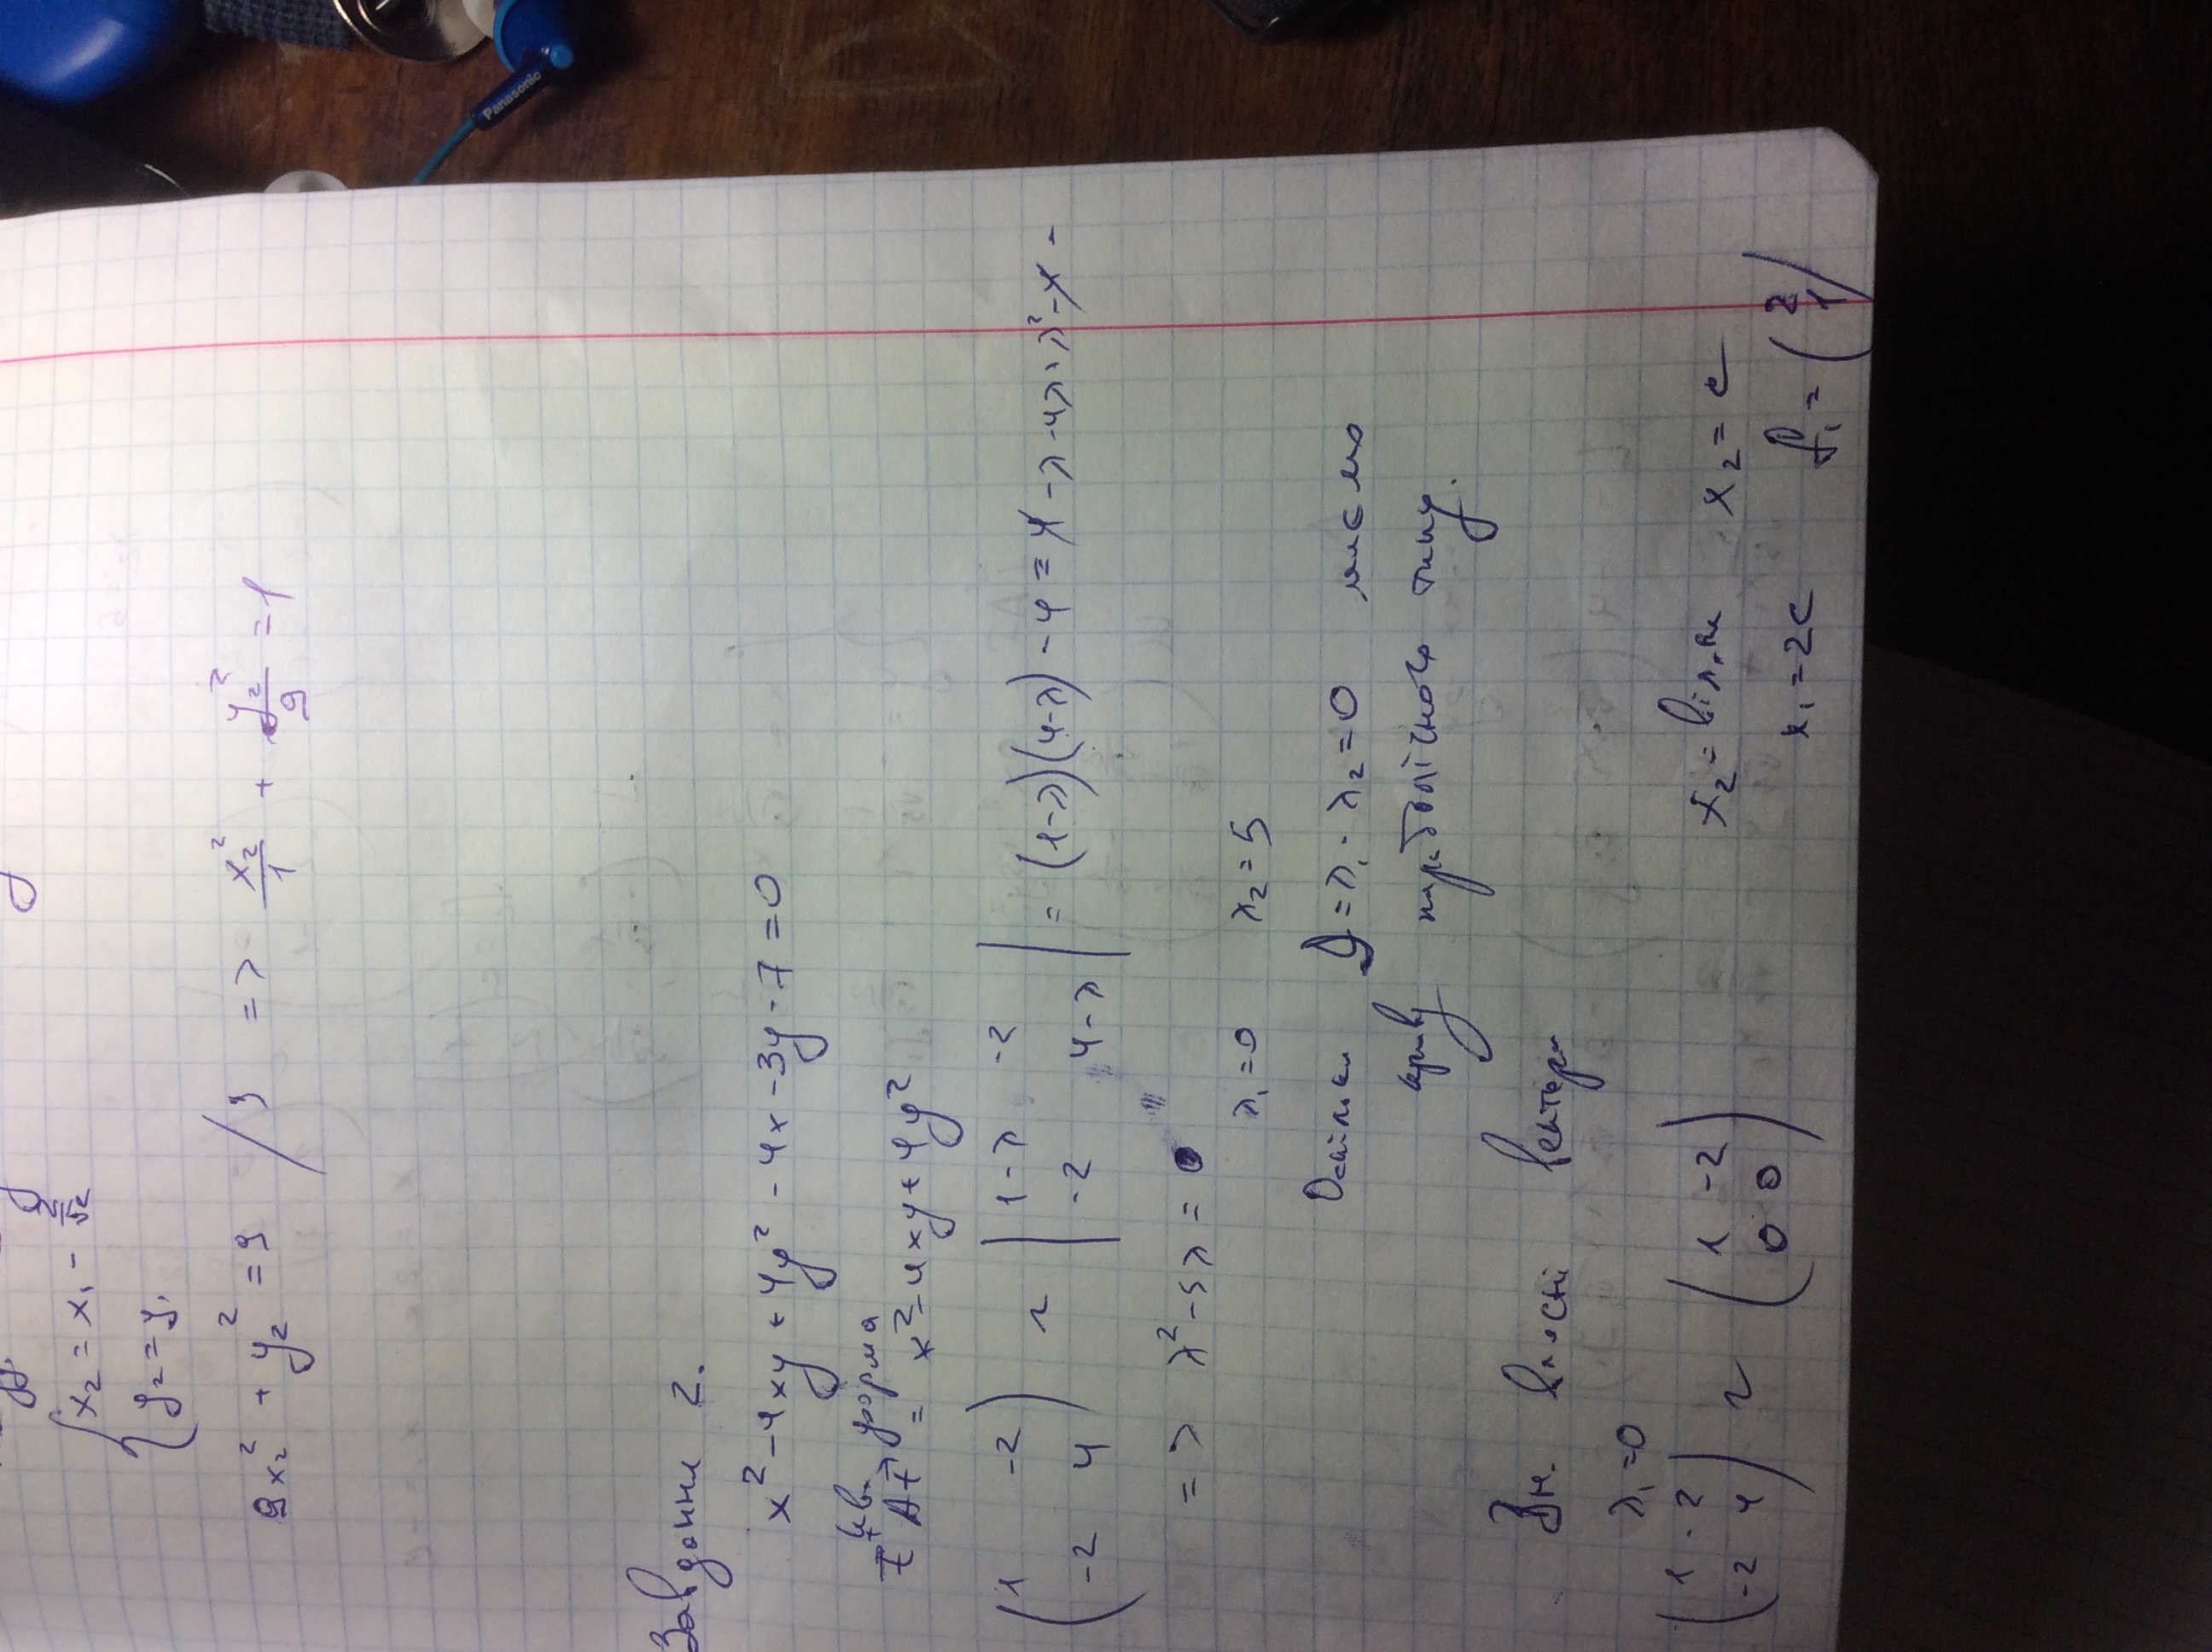 { x₂ = x₁ -
y₂ = y₁
9x₂² + y₂² = 9 / 9 => x₂²/1 + y₂²/9 = 1
Panasonic
Завдання 2.
x² - 4xy + 4y² - 4x - 3y - 7 = 0
кв. форма
= x² - 4xy + 4y²
(1 -2; -2 4) ~ |1-λ -2; -2 4-λ| = (1-λ)(4-λ) - 4 = 4 - λ - 4λ + λ² - 4 =
=> λ² - 5λ = 0
λ₁ = 0 λ₂ = 5
Оскільки D = λ₁ · λ₂ = 0 маємо
криву параболічного типу.
Зн. власні вектори
λ₁ = 0
(1 -2; -2 4) ~ (1 -2; 0 0) x₂ = вільна x₂ = c
x₁ = 2c f₁ = (2; 1)